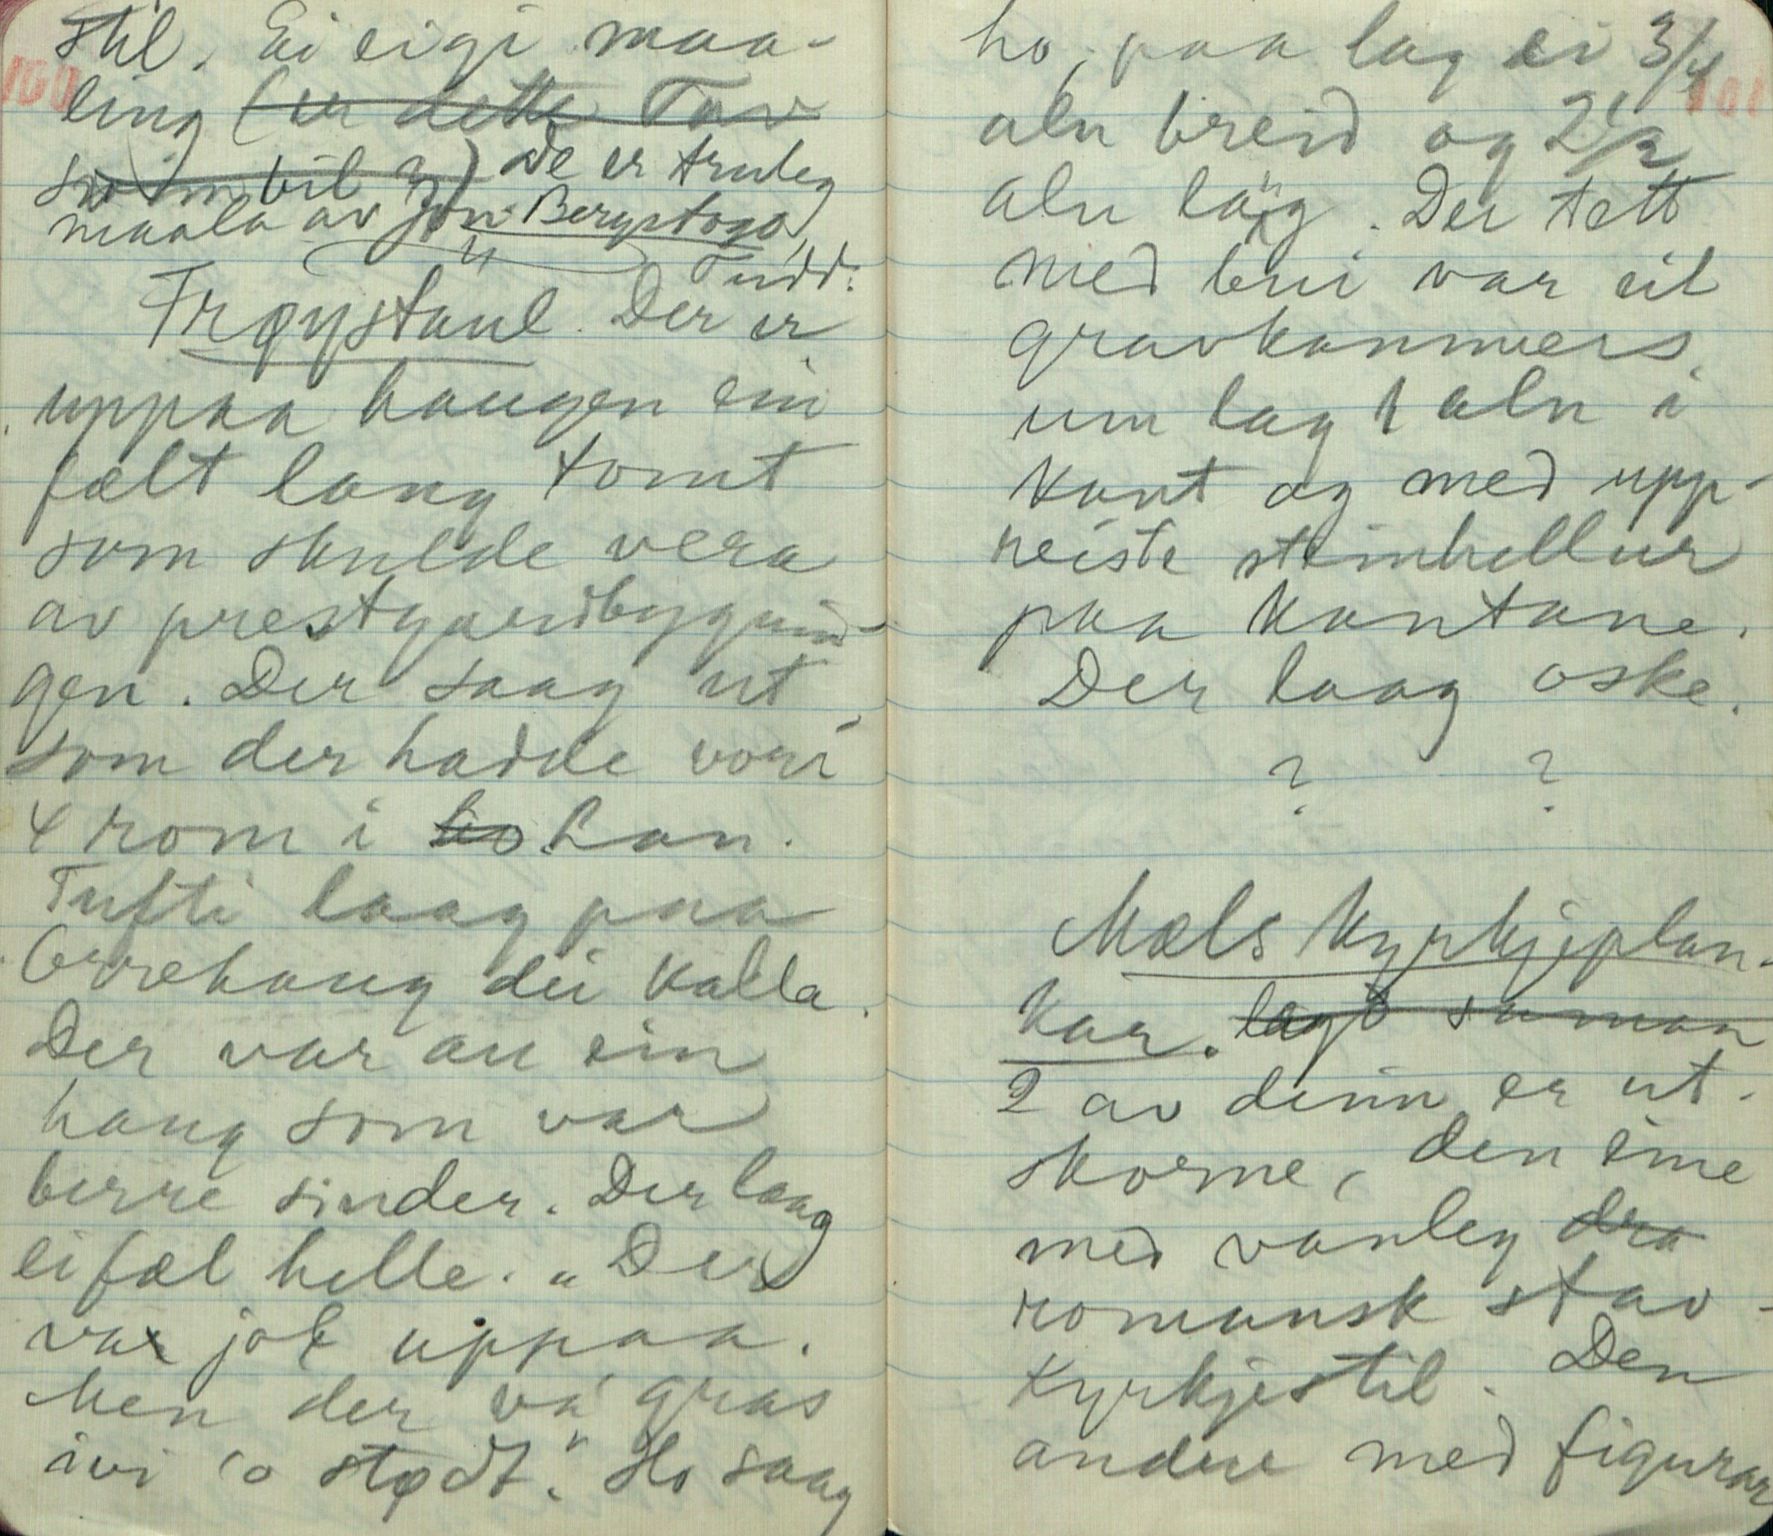 160
stil. Ei eigi maa-
ling (er dette Tov
som bil ?) De er truleg
maala av Jon Bergstogo,
Tudd:
Frøystaul. Der er
uppaa haugen ein
fælt lang tomt
som skulde vera
av prestgardbygnin-
gen. Der saag ut
som der hadde vori
4 rom i ho han.
Tufti laag paa
Orrehaug dei kalla.
Der var au ein
haug som var
berre sinder. Der laag
ei fæl helle. "Der
var jol uppaa.
Men der va' gras
ivi so stødt". Ho saag
161
ho, paa lag ei 3/4
aln breid og 2 1/2
aln lög. Der tett
med bui var eit
gravkammers,
um lag 1 aln i
kant og med upp-
reiste steinhellur
paa kantane.
Der laag oske.
? ?
Mæls kyrkjeplan-
kar. lagt saman
2 av deim er ut-
skorne, den eine
med vanleg dra
romansk stav-
kyrkjestil. Den
andre med figurar